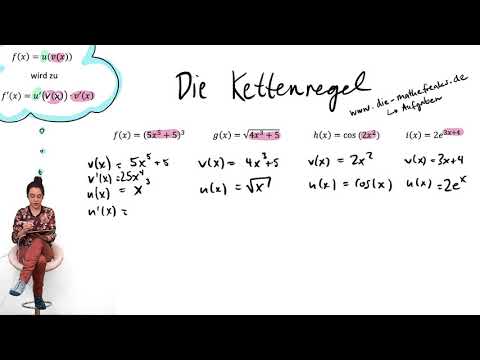 f(x) = u(v(x))
wird zu
f'(x) = u'(v(x)) · v'(x)
Die Kettenregel
www.die-mathefreaks.de
↳ Aufgaben
f(x) = (5x⁵ + 5)³
g(x) = √(4x³ + 5)
h(x) = cos (2x²)
i(x) = 2e³ˣ⁺⁴
v(x) = 5x⁵+5
v'(x) = 25x⁴
u(x) = x³
u'(x) =
v(x) = 4x³+5
u(x) = √x
v(x) = 2x²
u(x) = cos(x)
v(x) = 3x+4
u(x) = 2eˣ